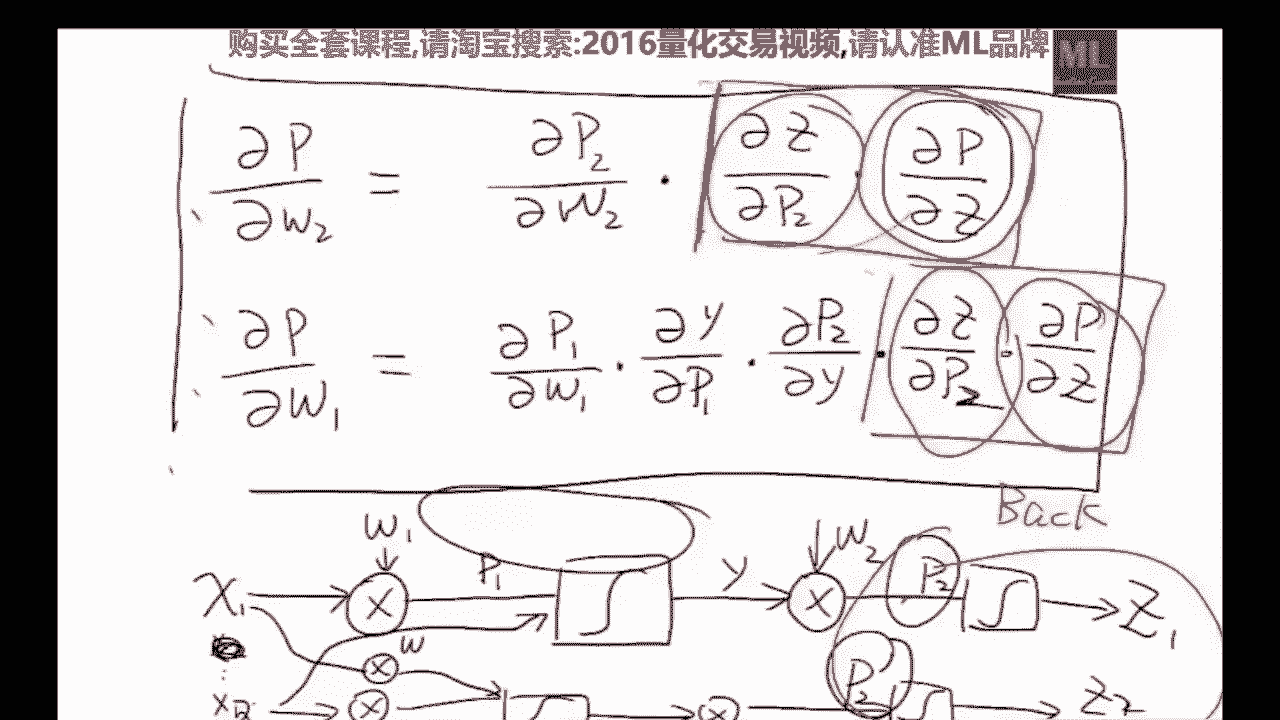 购买全套课程,请淘宝搜索:2016量化交易视频,请认准ML品牌 ML
∂P/∂W₂ = ∂P₂/∂W₂ · ∂Z/∂P₂ · ∂P/∂Z
∂P/∂W₁ = ∂P₁/∂W₁ · ∂y/∂P₁ · ∂P₂/∂y · ∂Z/∂P₂ · ∂P/∂Z
Back
W₁ W₂
X₁ × P₁ ∫ y × P₂ ∫ Z₁
× W
⋮
× × P₂ ∫ Z₂